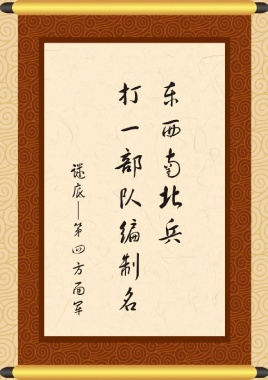 东西南北兵
打一部队编制名
谜底—第四方面军